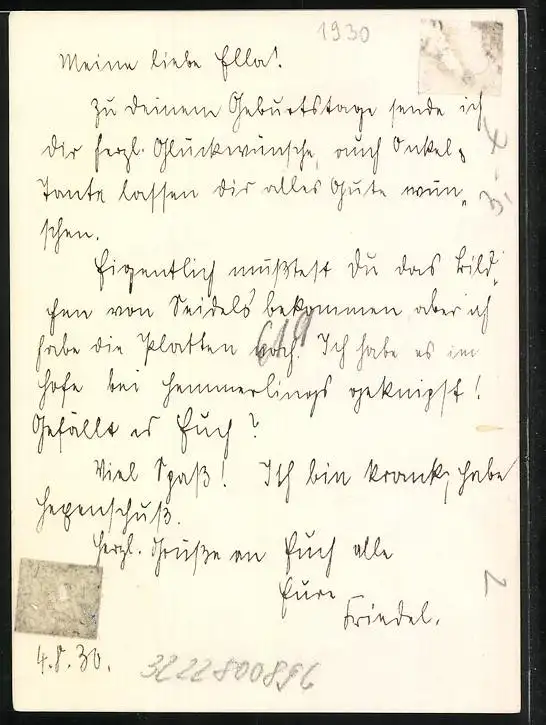 1930
Meine liebe Ella!
Zu Deinem Geburtstage sende ich
Dir herzl. Glückwünsche, auch Onkel,
Tante lassen Dir alles Gute wün-
schen.
Eigentlich müßtest Du das Bild-
chen von Seidels bekommen aber ich
habe die Platten noch. Ich habe es im
Hofe bei Hemmerlings geknipst!
Gefällt es Euch?
Viel Spaß! Ich bin krank, habe
Hexenschuß.
Herzl. Grüße an Euch alle
Eure
Friedel.
4.8.30.
3222800896
2